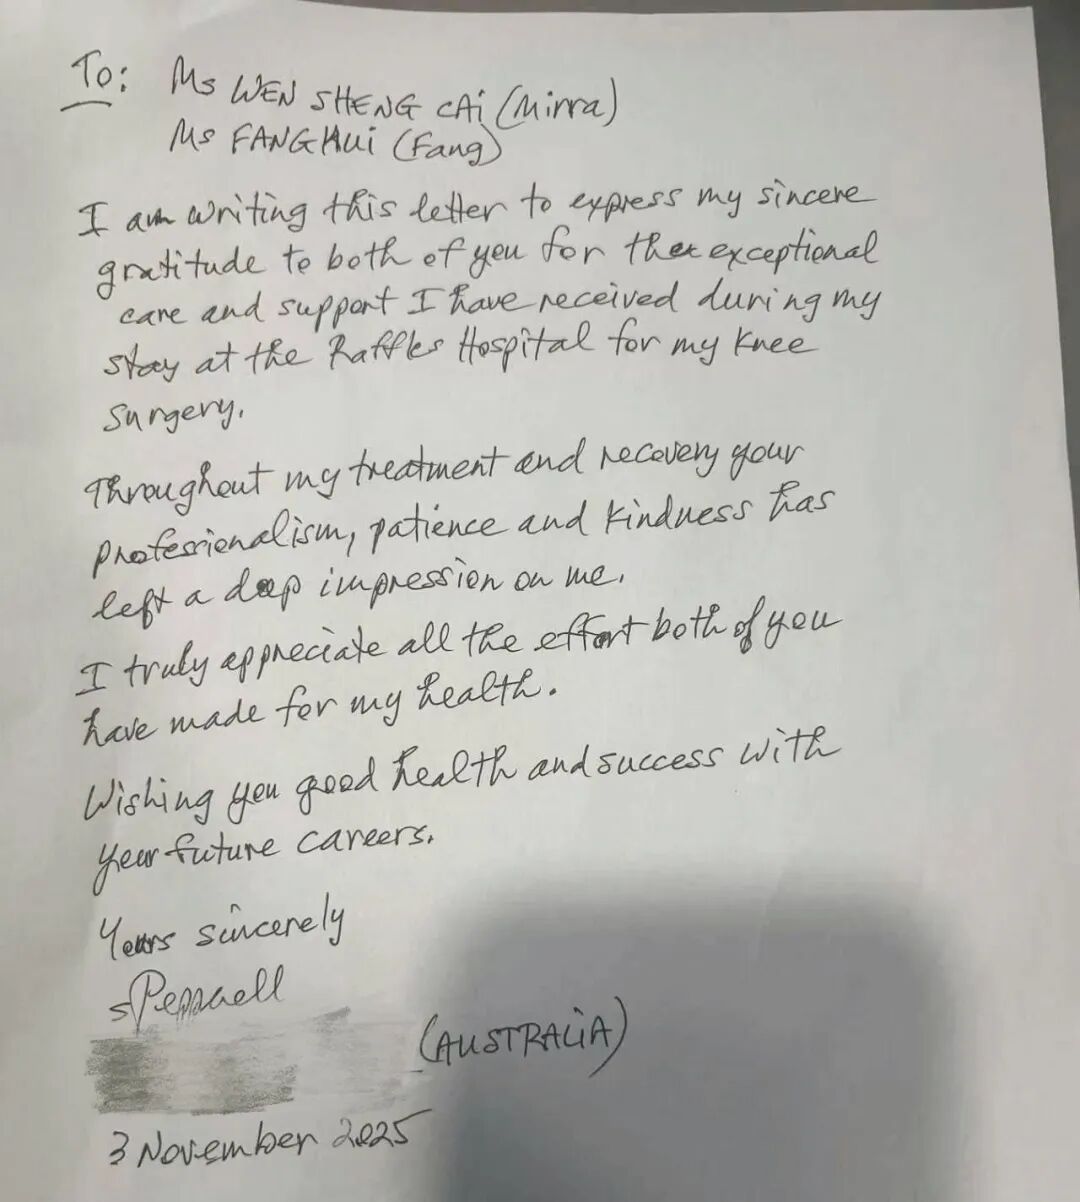 To: Ms WEN SHENG CAi (Mirra)
Ms FANGHUi (Fang)
I am writing this letter to express my sincere
gratitude to both of you for the exceptional
care and support I have received during my
stay at the Raffles Hospital for my knee
surgery.
Throughout my treatment and recovery your
professionalism, patience and kindness has
left a deep impression on me.
I truly appreciate all the effort both of you
have made for my health.
Wishing you good health and success with
your future careers.
Yours sincerely
(AUSTRALIA)
3 November 2025